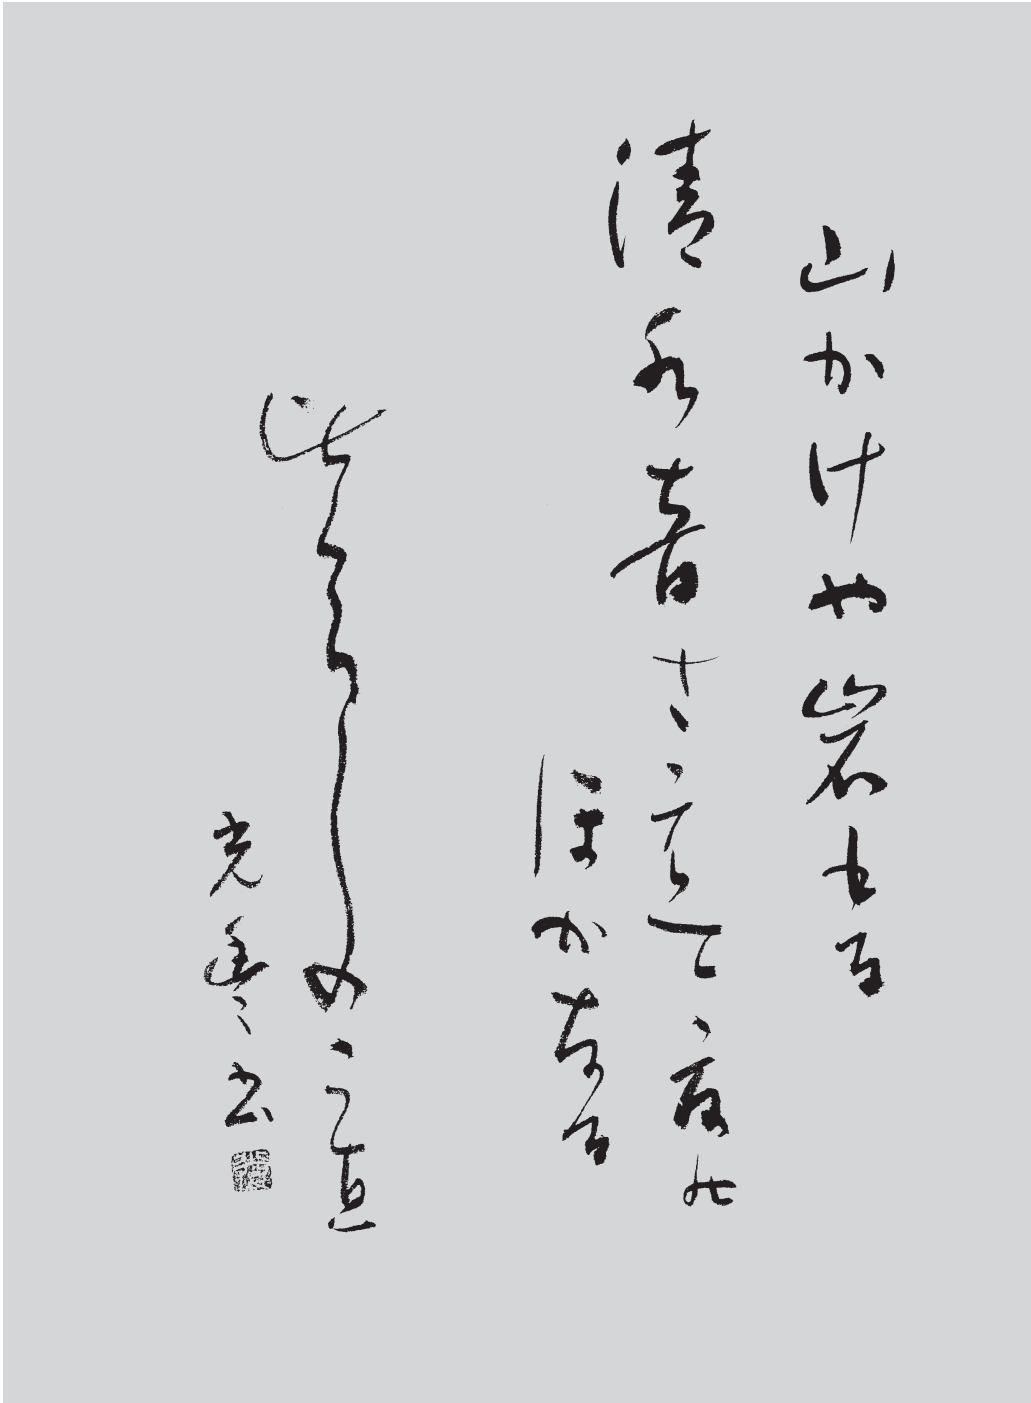 山かけや岩もる
清水音さえて夏の
ほかなる
ひくらしのこゑ
光 書